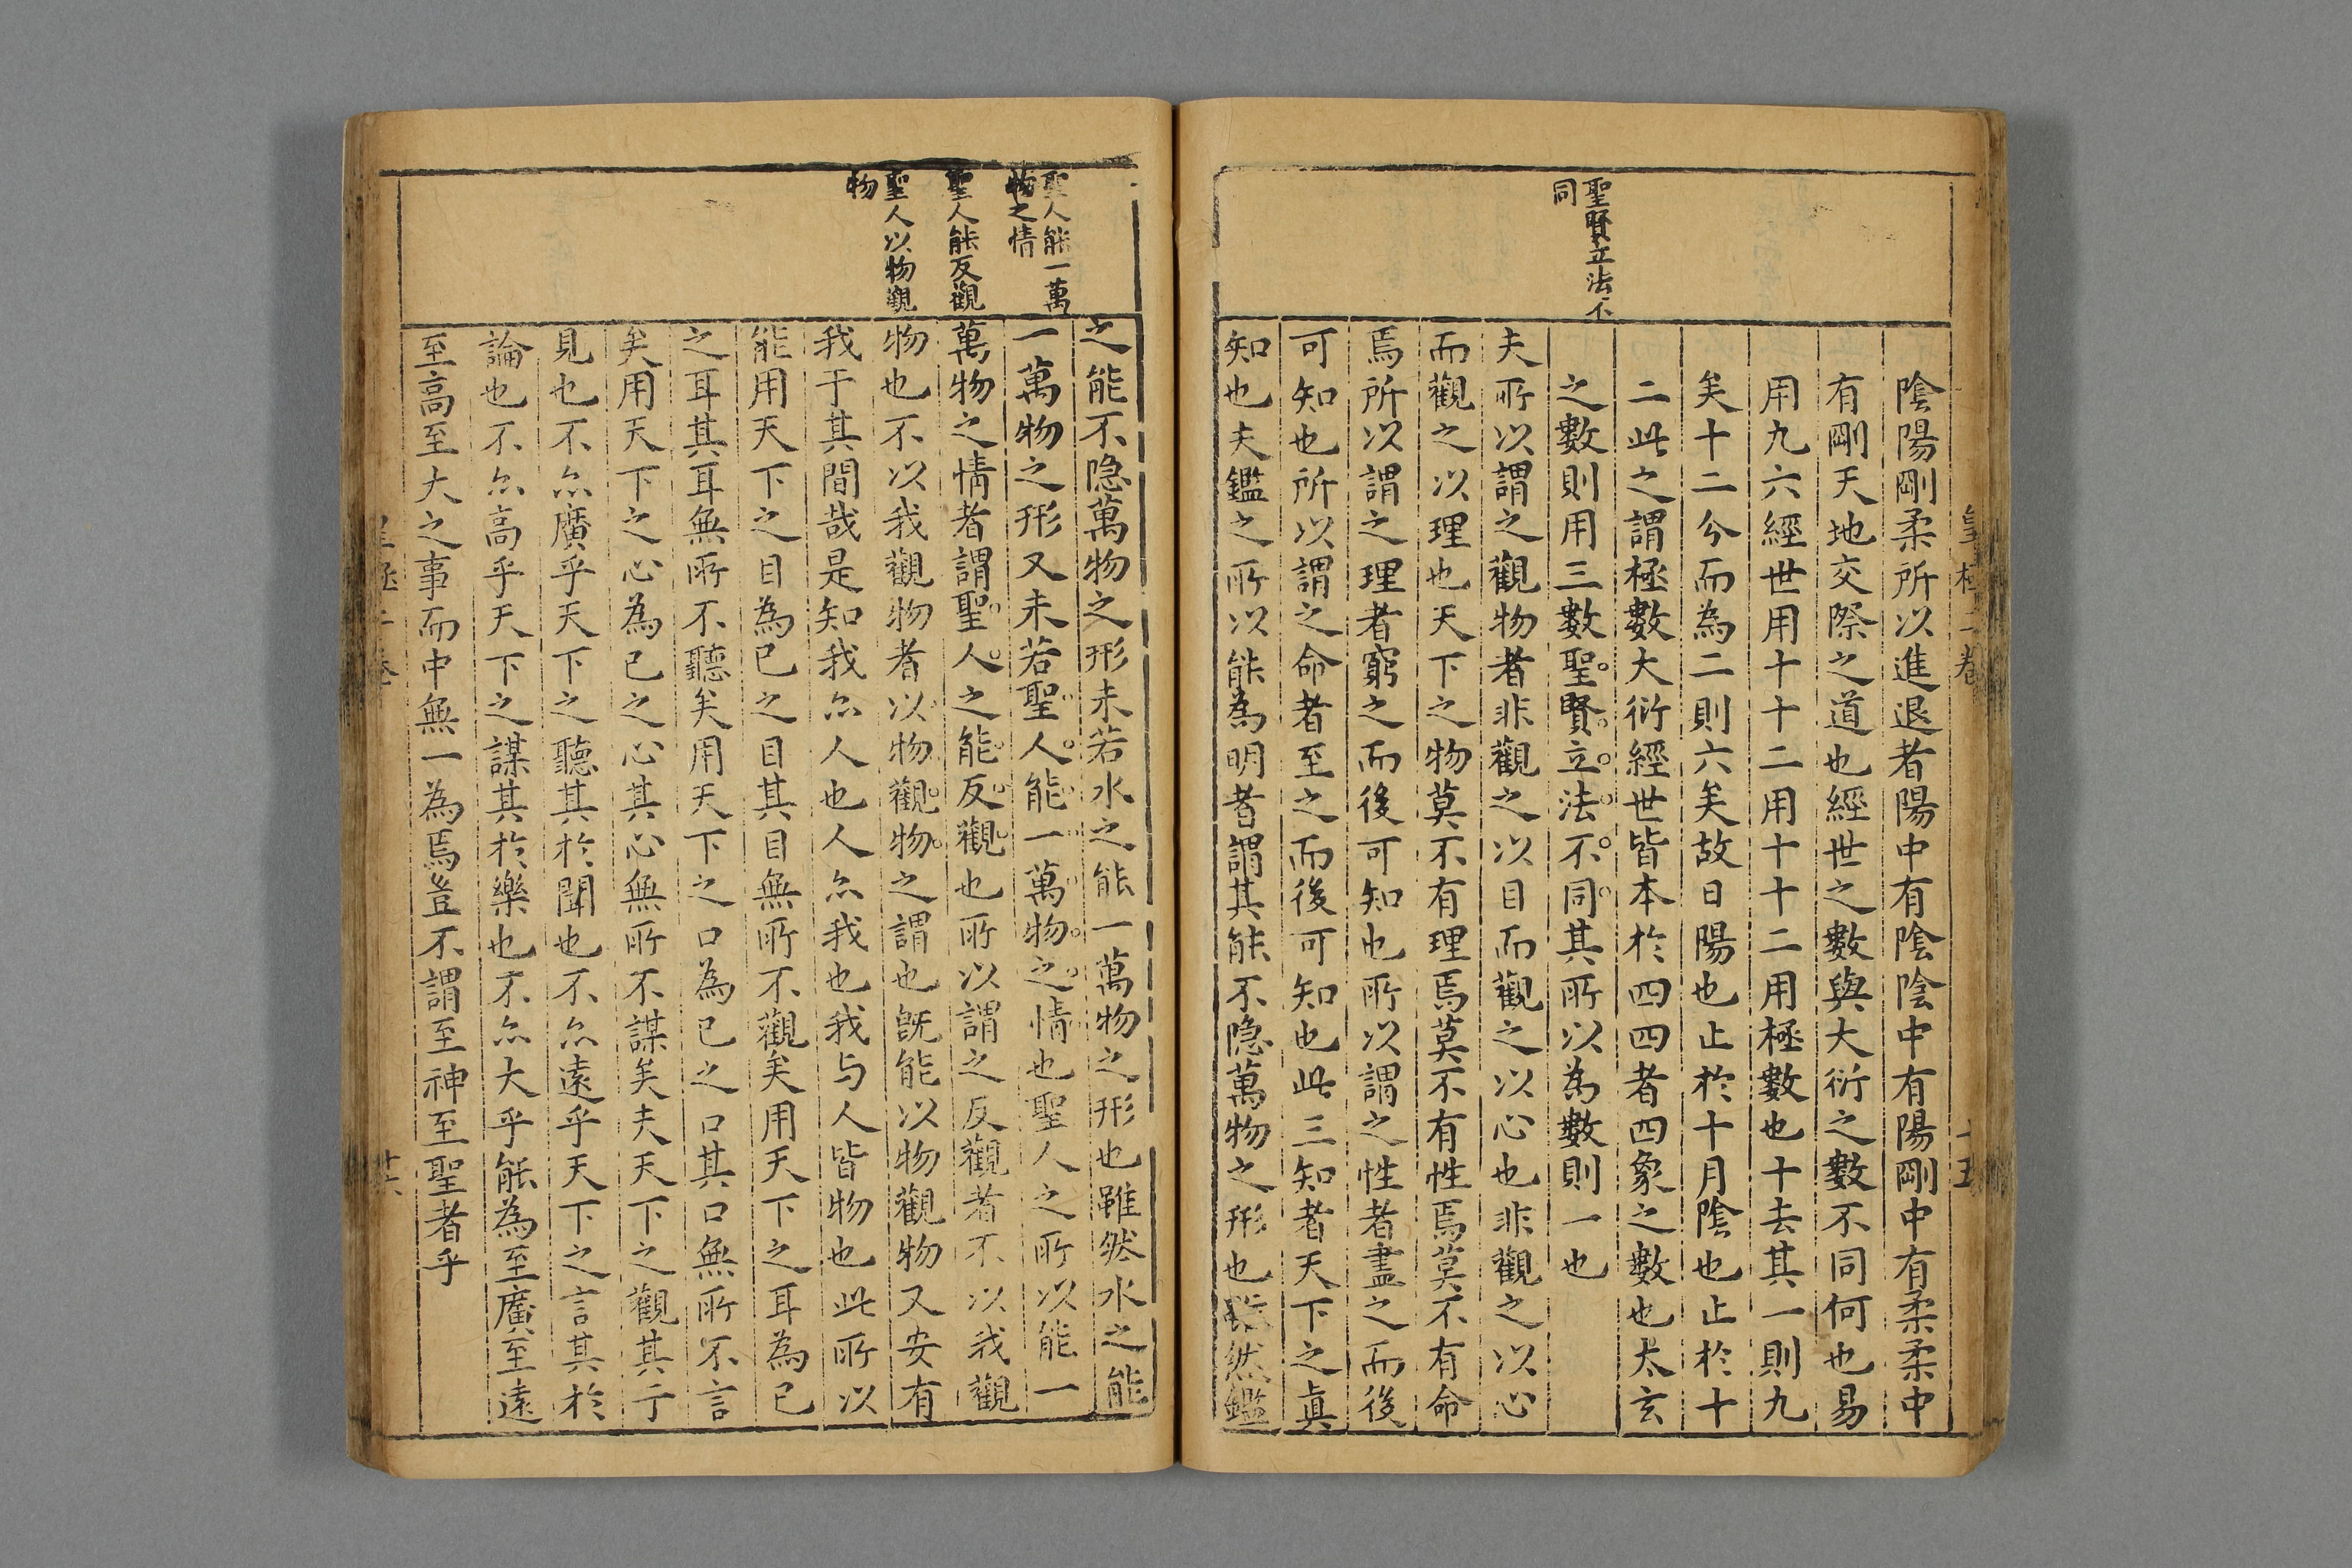 皇極二卷
十五
聖賢立法不
同
陰陽剛柔所以進退者陽中有陰陰中有陽剛中有柔柔中
有剛天地交際之道也經世之數與大衍之數不同何也易
用九六經世用十十二用十十二用極數也十去其一則九
矣十二分而為二則六矣故日陽也止於十月陰也止於十
二此之謂極數大衍經世皆本於四四者四象之數也太玄
之數則用三數聖賢立法不同其所以為數則一也
夫所以謂之觀物者非觀之以目而觀之以心也非觀之以心
而觀之以理也天下之物莫不有理焉莫不有性焉莫不有命
焉所以謂之理者窮之而後可知也所以謂之性者盡之而後
可知也所以謂之命者至之而後可知也此三知者天下之真
知也夫鑑之所以能為明者謂其能不隐萬物之形也雖然鑑
聖人能一萬
物之情
聖人能反觀
聖人以物觀
物
之能不隐萬物之形未若水之能一萬物之形也雖然水之能
一萬物之形又未若聖人能一萬物之情也聖人之所以能一
萬物之情者謂聖人之能反觀也所以謂之反觀者不以我觀
物也不以我觀物者以物觀物之謂也旣能以物觀物又安有
我于其間哉是知我亦人也人亦我也我与人皆物也此所以
能用天下之目為已之目其目無所不觀矣用天下之耳為已
之耳其耳無所不聽矣用天下之口為已之口其口無所不言
矣用天下之心為已之心其心無所不謀矣夫天下之觀其于
見也不亦廣乎天下之聽其於聞也不亦遠乎天下之言其於
論也不亦高乎天下之謀其於樂也不亦大乎能為至廣至遠
至高至大之事而中無一為焉豈不謂至神至聖者乎